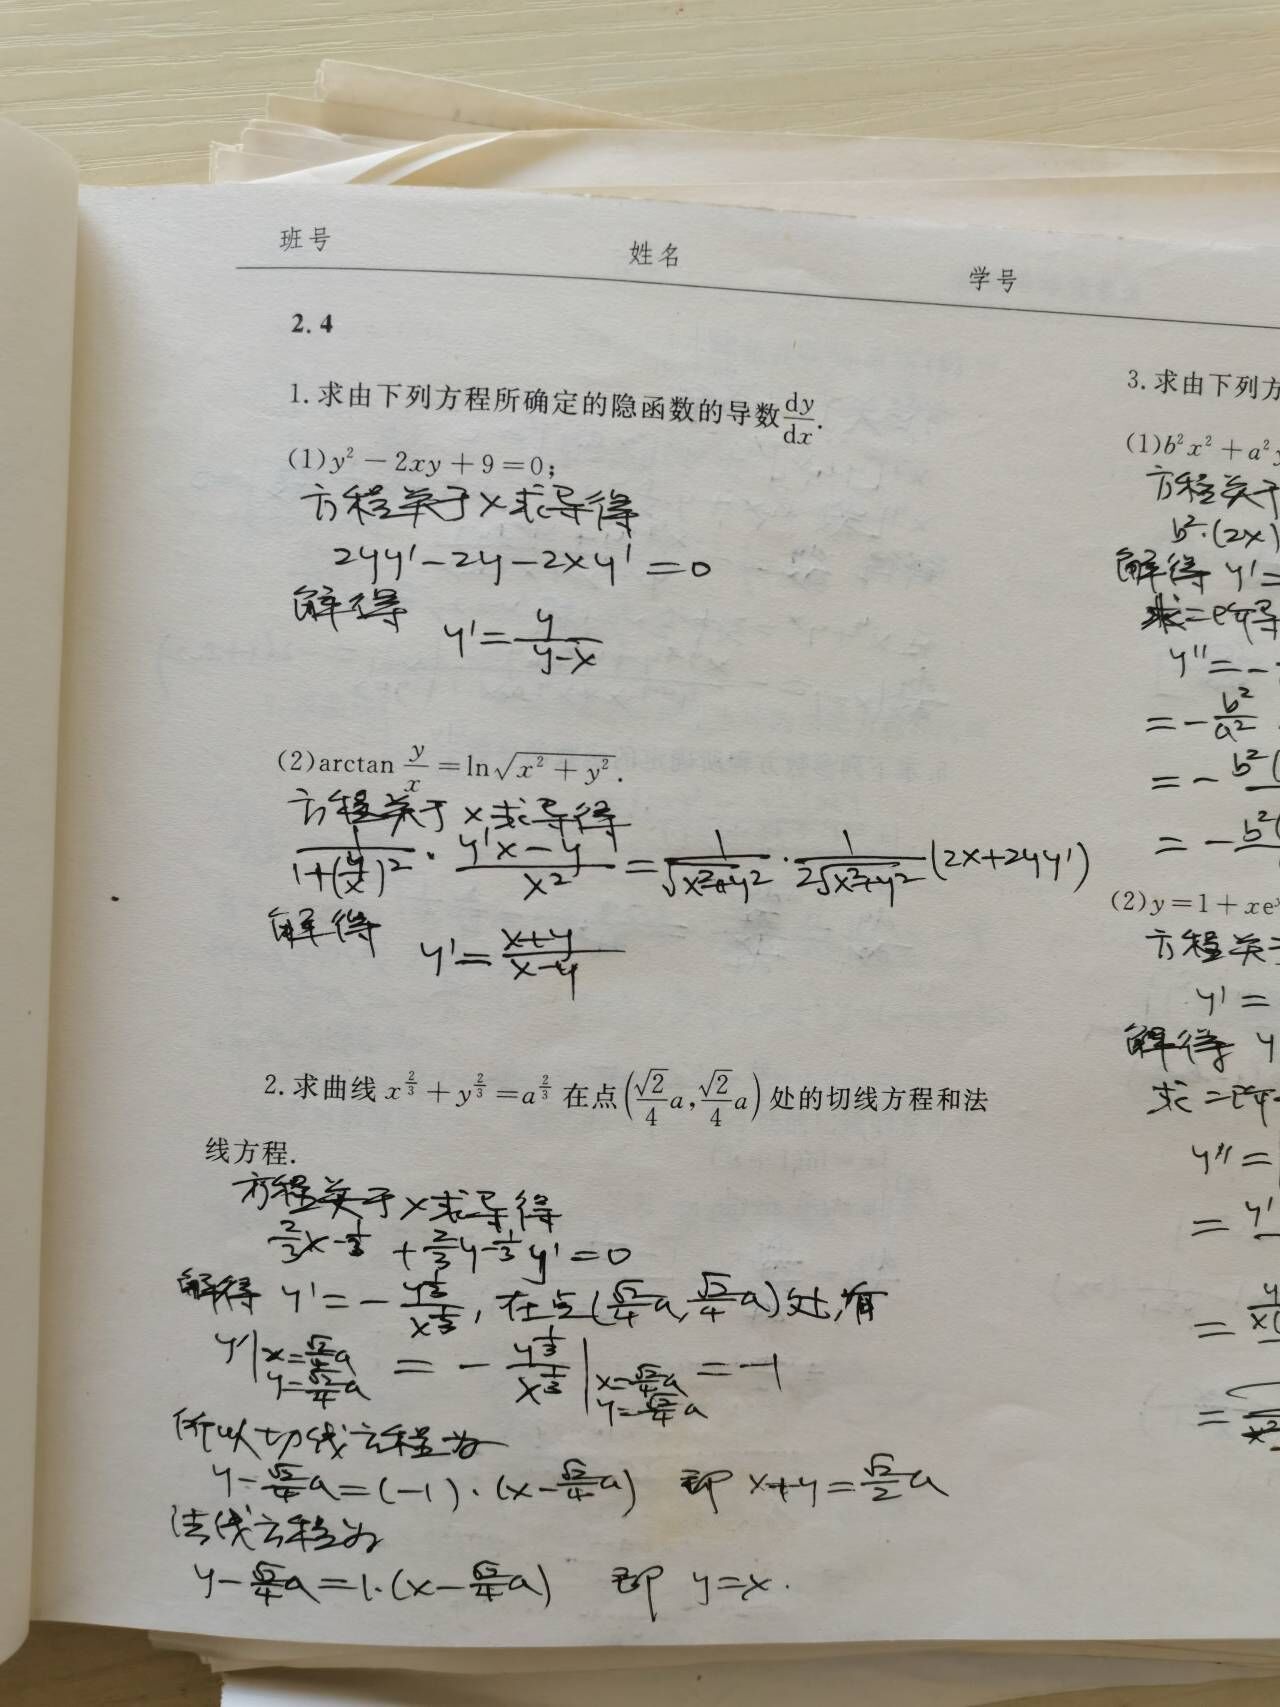 班号 姓名 学号
2.4
1.求由下列方程所确定的隐函数的导数dy/dx.
(1)y²-2xy+9=0;
方程关于x求导得
2yy'-2y-2xy'=0
解得 y'=y/(y-x)
(2)arctan y/x=ln√(x²+y²).
方程关于x求导得
1/(1+(y/x)²)·(y'x-y)/x²=1/√(x²+y²)·1/(2√(x²+y²))(2x+2yy')
解得 y'=(x+y)/(x-y)
2.求曲线x^(2/3)+y^(2/3)=a^(2/3)在点(√2/4 a,√2/4 a)处的切线方程和法
线方程.
方程关于x求导得
2/3x^(-1/3)+2/3y^(-1/3)y'=0
解得 y'=-y^(1/3)/x^(1/3),在点(√2/4 a,√2/4 a)处,有
y'|x=√2/4 a y=√2/4 a =-y^(1/3)/x^(1/3)|x=√2/4 a y=√2/4 a =-1
所以切线方程为
y-√2/4 a=(-1)·(x-√2/4 a) 即 x+y=√2/2 a
法线方程为
y-√2/4 a=1·(x-√2/4 a) 即 y=x.
3.求由下列方
(1)b²x²+a²y
方程关于
b²·(2x)
解得 y'=
求二阶导
y''=-
=-b²/a²
=-b²(
=-b²(
(2)y=1+xe
方程关于
y'=
解得 y
求二阶
y''=
=y'
=
=